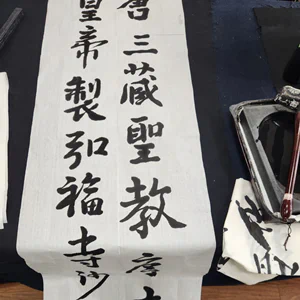 唐三藏聖教序
皇帝製弘福寺沙